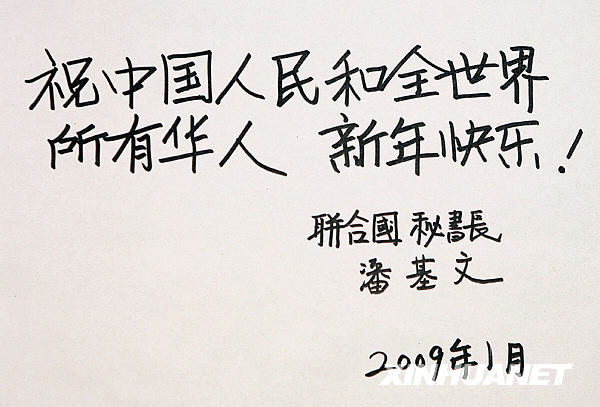 祝中国人民和全世界
所有华人 新年快乐！
聯合國 秘書長
潘基文
2009年1月
XINHUANET